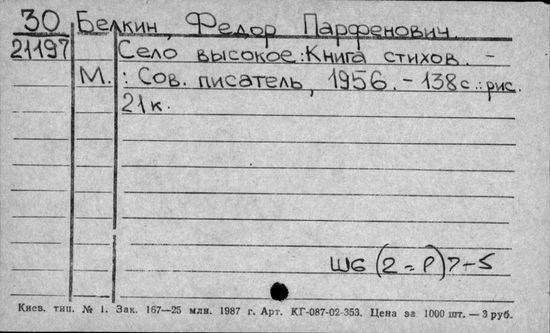 30 Белкин, Федор Парфенович.
21197 Село высокое: Книга стихов. -
М.: Сов. писатель, 1956. - 138с.: рис.
21к.
Ш6 (2=Р)7-5
Киев. тип. № 1. Зак. 167—25 млн. 1987 г. Арт. КГ-087-02-353. Цена за 1000 шт. — 3 руб.